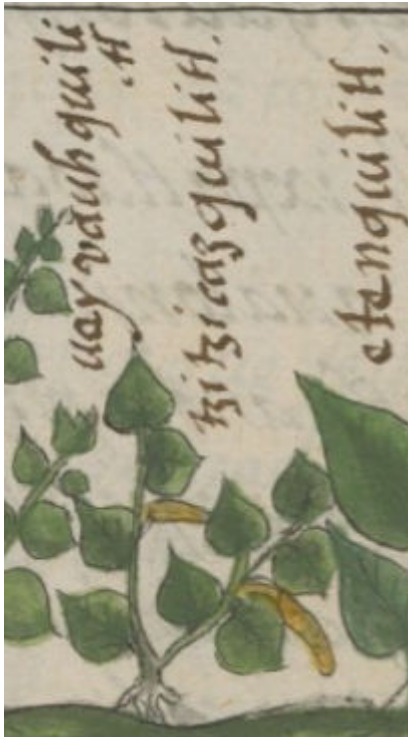 uey vauhquili
tl.
tzitzicazquilitl.
etenquilitl.